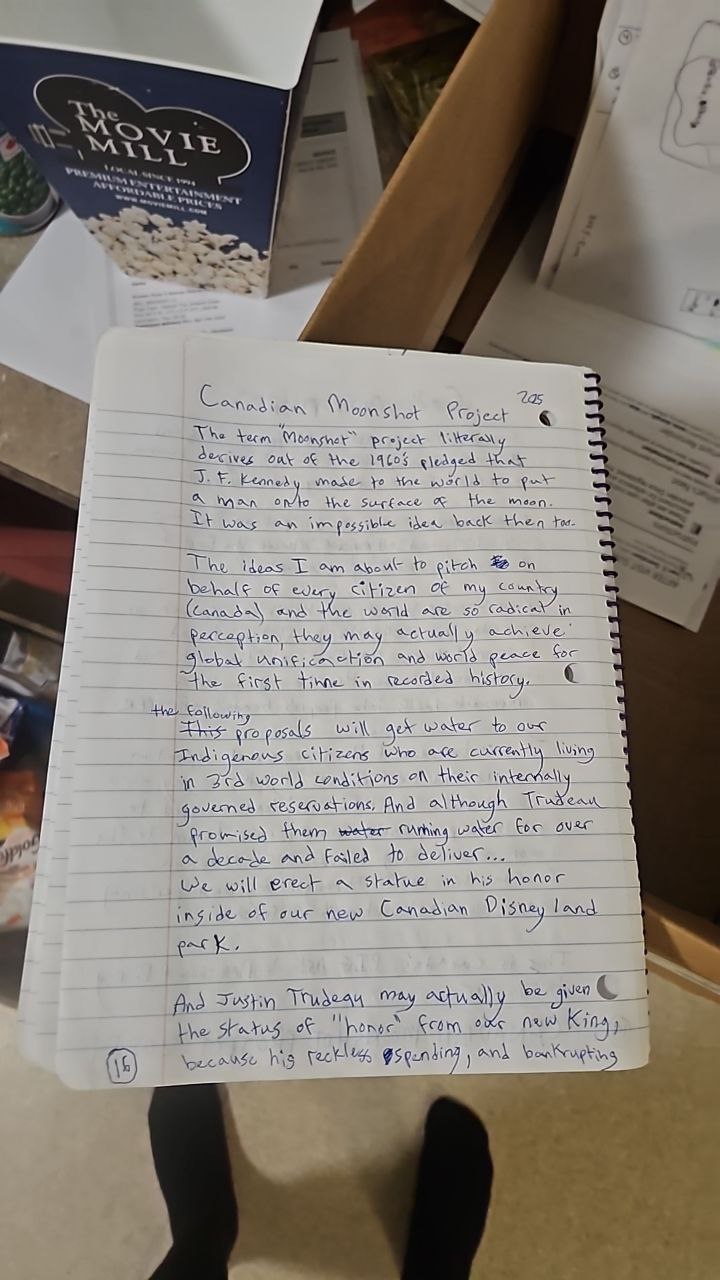 The
MOVIE
MILL
LOCAL SINCE 1994
PREMIUM ENTERTAINMENT
AFFORDABLE PRICES
WWW.MOVIEMILL.COM
Canadian Moonshot Project 205
The term "Moonshot" project litterally
derives out of the 1960's pledged that
J. F. Kennedy made to the world to put
a man onto the surface of the moon.
It was an impossible idea back then too.
The ideas I am about to pitch on
behalf of every citizen of my country
(Canada) and the world are so radical in
perception, they may actually achieve
global unification and world peace for
the first time in recorded history.
the following
This proposals will get water to our
Indigenous citizens who are currently living
in 3rd world conditions on their internally
governed reservations. And although Trudeau
promised them water running water for over
a decade and failed to deliver...
We will erect a statue in his honor
inside of our new Canadian Disneyland
park.
And Justin Trudeau may actually be given
the status of "honor" from our new King,
because his reckless spending, and bankrupting
16